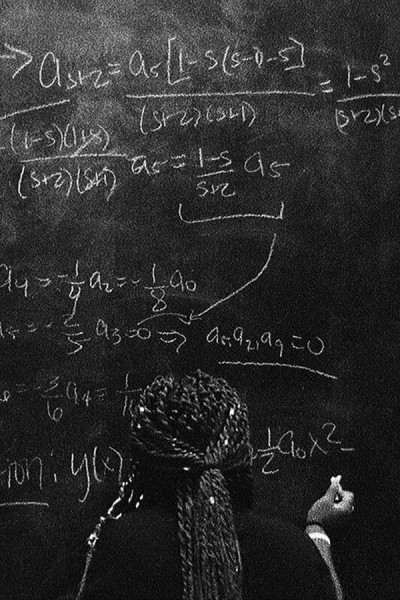 → a_{s+2} = a_s[1-s(s-0-s)] / (s+2)(s+1) = 1-s² / (s+2)(s
(1-s)(1+s) / (s+2)(s+1) a_s = 1-s / s+2 a_s
a_4 = -1/4 a_2 = -1/8 a_0
a_3 = 0 ⇒ a_5, a_7, a_9 = 0
/6 a_4 =
ion: y(x)
1/2 a_0 x² -